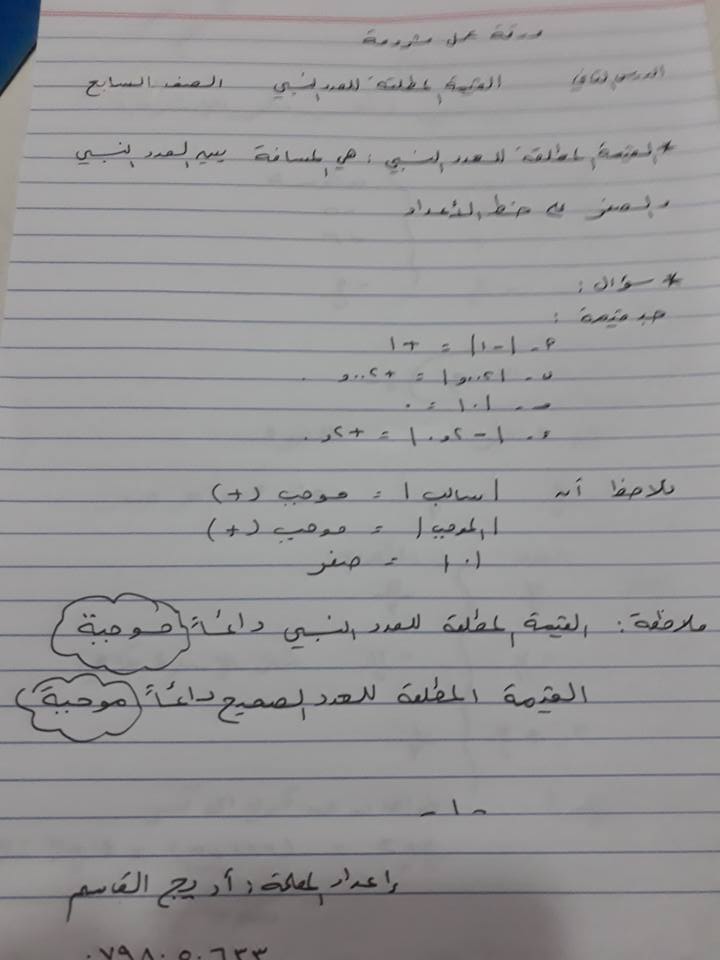 ورقة عمل مشروحة
الدرس الثاني القيمة المطلقة للعدد النسبي الصف السابع
* القيمة المطلقة للعدد النسبي : هي المسافة بين العدد النسبي
والصفر على خط الأعداد
* سؤال :
جد قيمة :
٩- |-١| = +١
= +٢
|٠| = ٠
نلاحظ أن |سالب| = موجب (+)
|الموجب| = موجب (+)
|٠| = صفر
ملاحظة : القيمة المطلقة للعدد النسبي دائماً موجبة
القيمة المطلقة للعدد الصحيح دائماً موجبة
-١-
إعداد المعلمة : أريج القاسم
٠٧٩٨٠٥٠٦٣٣